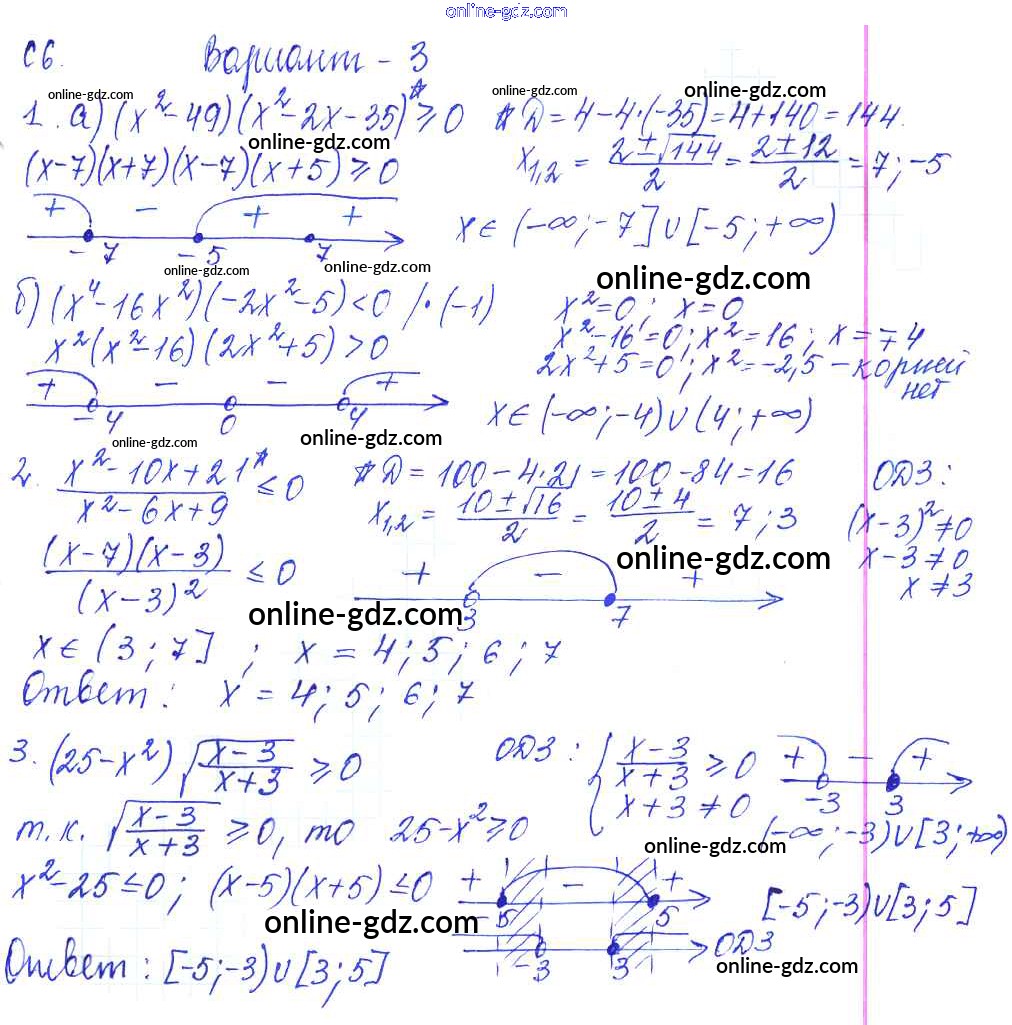 online-gdz.com
С6. Вариант - 3
online-gdz.com online-gdz.com online-gdz.com
1. а) (x² - 49)(x² - 2x - 35)* ≥ 0 * D = 4 - 4·(-35) = 4 + 140 = 144.
online-gdz.com online-gdz.com
(x-7)(x+7)(x-7)(x+5) ≥ 0 x₁,₂ = (2 ± √144)/2 = (2 ± 12)/2 = 7; -5
+ - + +
-7 -5 7 x ∈ (-∞; -7] ∪ [-5; +∞)
online-gdz.com online-gdz.com online-gdz.com
б) (x⁴ - 16x²)(-2x² - 5) < 0 / · (-1) x² = 0; x = 0
x²(x² - 16)(2x² + 5) > 0 x² - 16 = 0; x² = 16; x = ∓4
2x² + 5 = 0; x² = -2,5 - корней нет
+ - - +
-4 0 4 x ∈ (-∞; -4) ∪ (4; +∞)
online-gdz.com online-gdz.com online-gdz.com
2. (x² - 10x + 21*)/(x² - 6x + 9) ≤ 0 * D = 100 - 4·21 = 100 - 84 = 16 ОДЗ:
x₁,₂ = (10 ± √16)/2 = (10 ± 4)/2 = 7; 3 (x-3)² ≠ 0
x - 3 ≠ 0
x ≠ 3
online-gdz.com
(x-7)(x-3)/(x-3)² ≤ 0 + - +
3 7
online-gdz.com
x ∈ (3; 7] ; x = 4; 5; 6; 7
Ответ: x = 4; 5; 6; 7
3. (25 - x²) √((x-3)/(x+3)) ≥ 0 ОДЗ: { (x-3)/(x+3) ≥ 0 + - +
x + 3 ≠ 0 -3 3
т.к. √((x-3)/(x+3)) ≥ 0, то 25 - x² ≥ 0 (-∞; -3) ∪ [3; +∞)
online-gdz.com
x² - 25 ≤ 0; (x-5)(x+5) ≤ 0 + - +
-5 5 [-5; -3) ∪ [3; 5]
online-gdz.com
-3 3 ОДЗ
Ответ: [-5; -3) ∪ [3; 5]
online-gdz.com